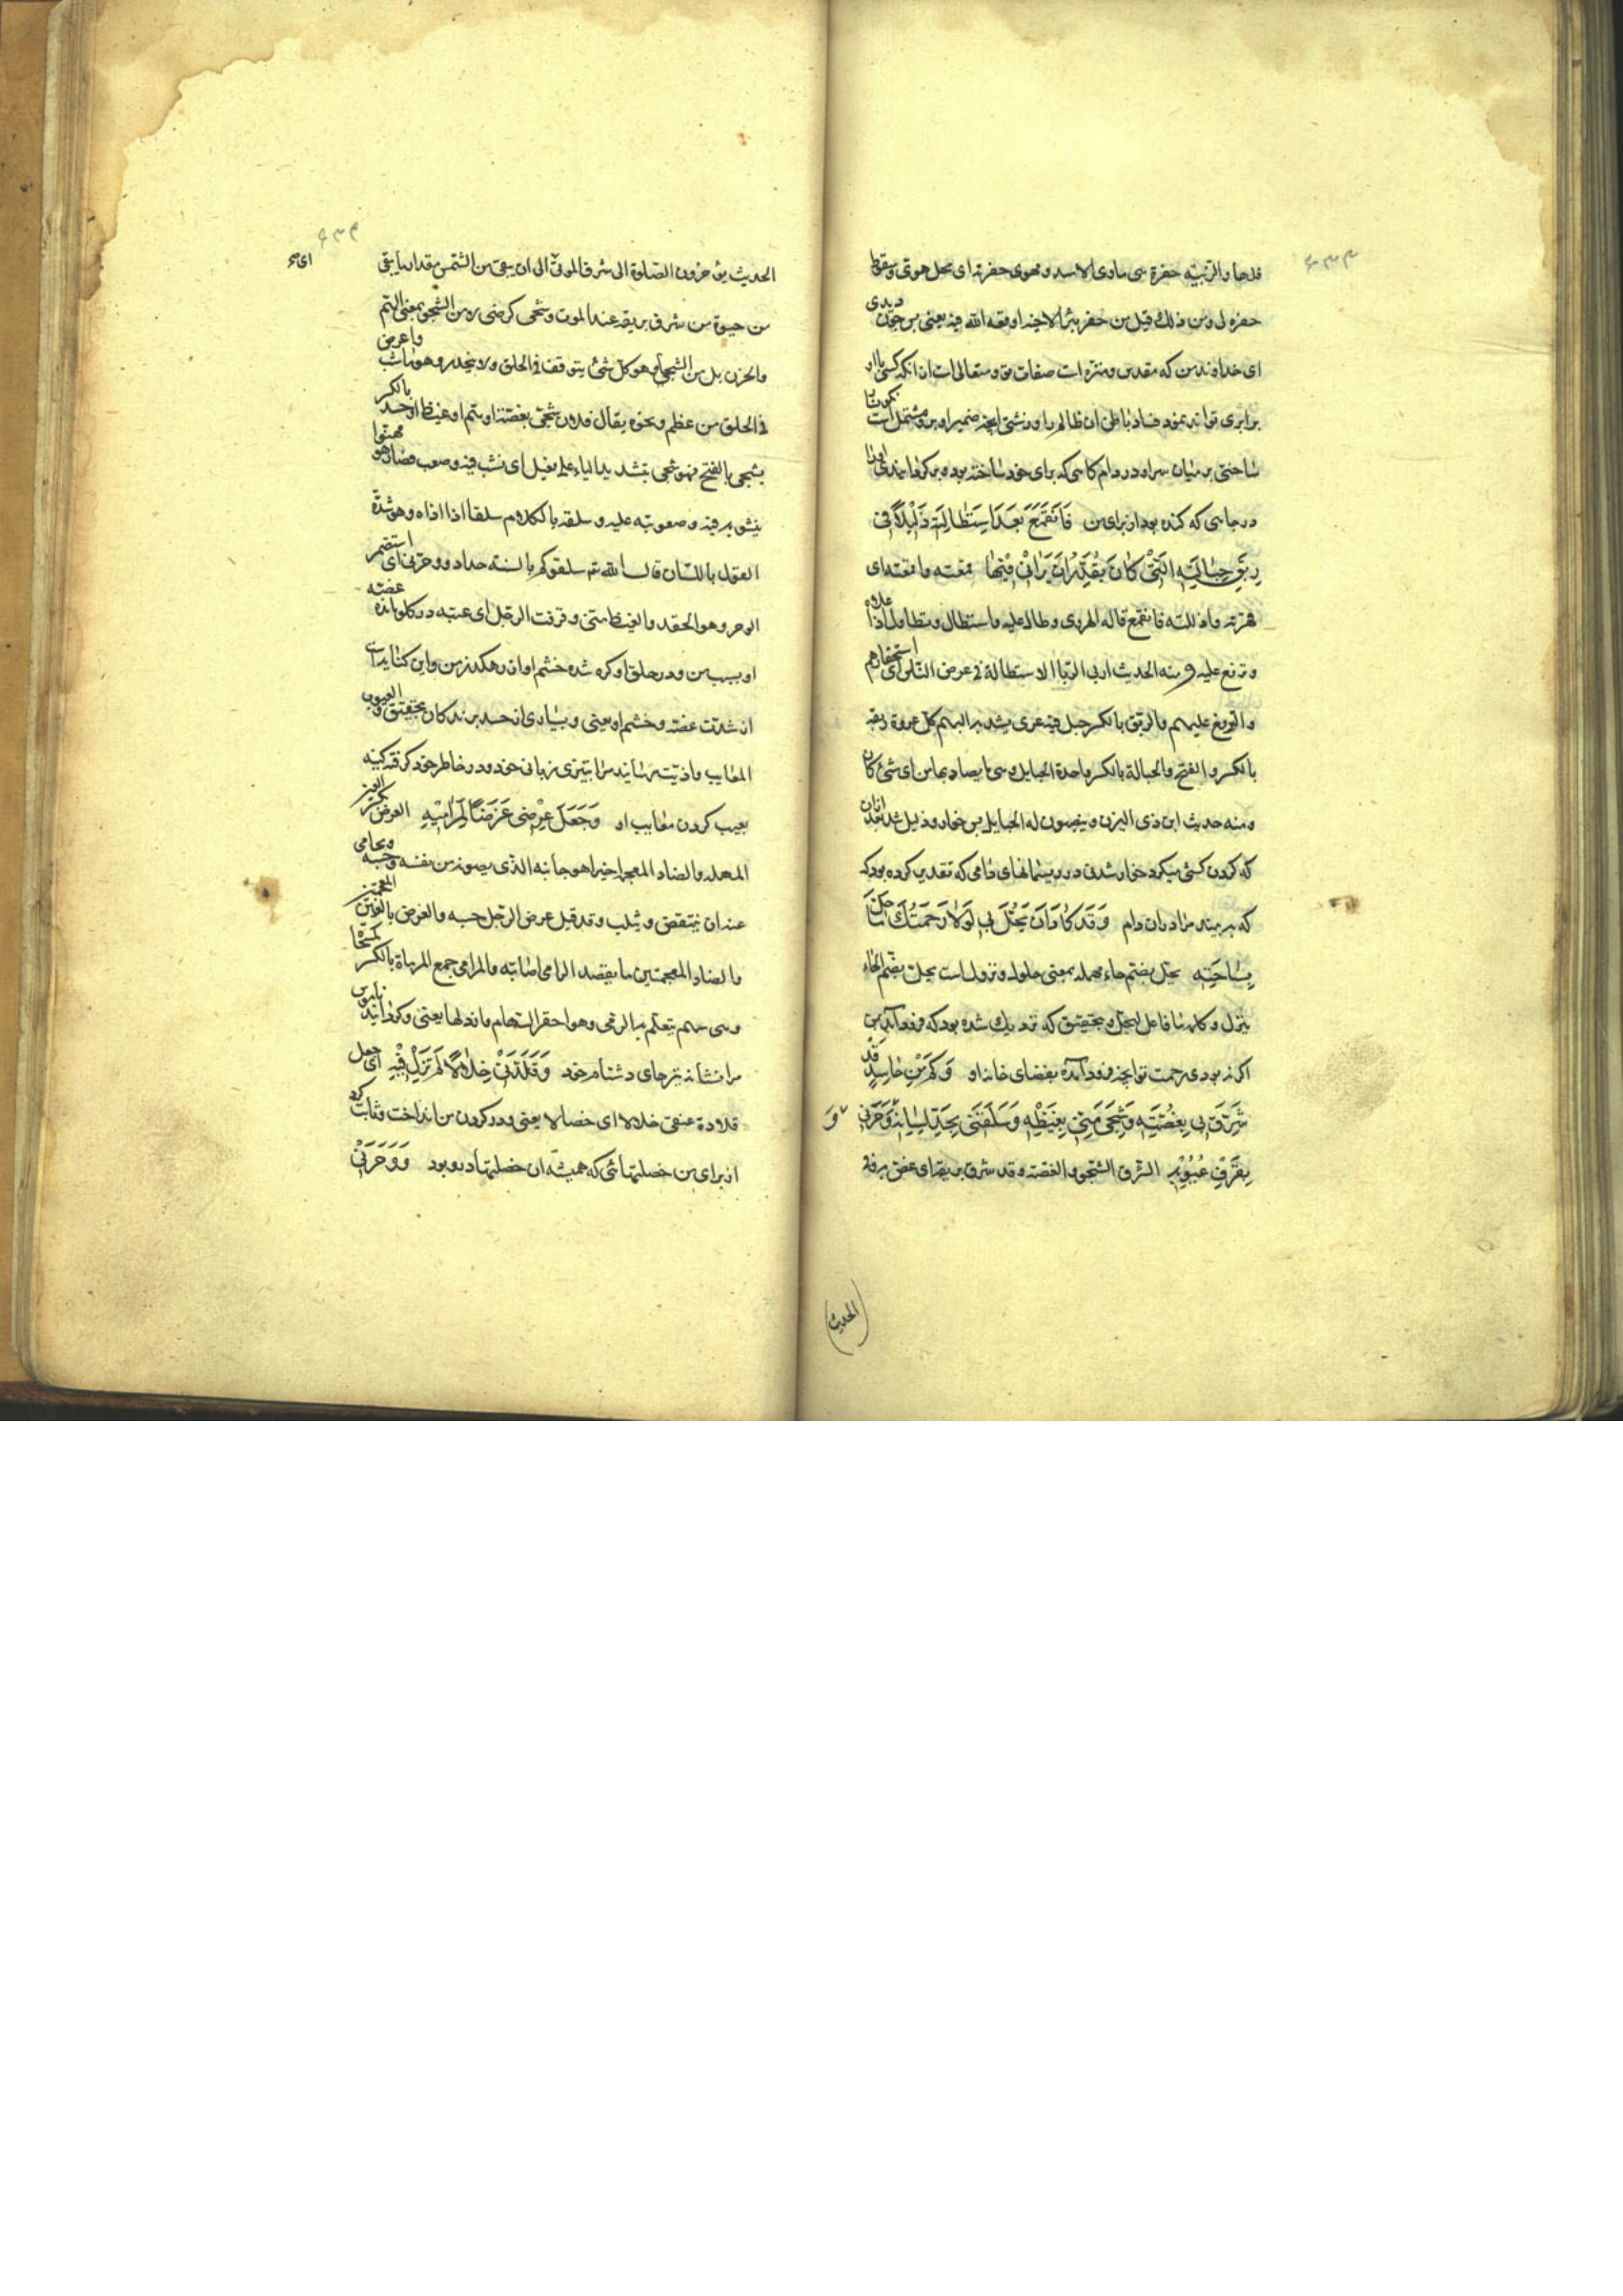 ۶۳۳
قلها والزبية حفرة هی ماوی الاسد و مهوی حفرته ای محل هوتی وسقوط
حفره لی ومن ذلک قیل من حفر بئرا لاخیه اوقعه الله فیه یعنی پس چون دیدی
ای خداوند من که مقدس و منزه است صفات تو و متعالی است از آنکه کسی با او
برابری تواند نمود فساد باطن ان ظالم را و زشتی آنچه ضمیر او بر و مشتمل است نگونسار
ساختی بر میان سر او در دام کاهی که برای خود ساخته بوده برگردانیدی او را
در چاهی که کنده بود از برای من فَانْقَمَعَ بَعْدَ اسْتِطَالَتِهِ ذَلِيلًا فِي
رِبَقِ حِبَالَتِهِ الَّتِي كَانَ يُقَدِّرُ اَنْ يَرَانِي فِيهَا قمعته و اقمعته ای
قهرته واذللته فانقمع قاله الهروی وطال علیه واستطال وتطاول اذا علاه
وترفع علیه ومنه الحدیث اربی الربا الاستطالة فی عرض الناس ای استحقارهم
والترفع علیهم والربق بالکسر حبل فیه عری یشد به البهم کل عروة ربقه
بالکسر والفتح والحبالة بالکسر واحدة الحبایل وهی ما یصاد بها من ای شئ کان
ومنه حدیث ابن ذی الیزن وینصبون له الحبایل پس خوار و ذلیل شد بعد از ان
که گردن کشی میکرد خوار شدنی در ریسمانهای دامی که تقدیر کرده بود که
که به بیند مرا در ان دام وَقَدْ كَادَ اَنْ يَحُلَّ بِي لَوْلَا رَحْمَتُكَ مَا حَلَّ
بِسَاحَتِهِ یحل بضم حاء مهمله بمعنی حلول و نزول است یحل بضم الحاء
ینزل و کلمه ما فاعل یحل و بتحقیق که نزدیک شده بود که فرود آید بمن
اگر نه بودی رحمت تو آنچه فرود آمده بفضای خانه او وَكَمْ مِنْ حَاسِدٍ قَدْ
شَرِقَ بِي بِغُصَّتِهِ وَشَجِيَ مِنِّي بِغَيْظِهِ وَسَلَقَنِي بِحَدِّ لِسَانِهِ وَوَحَرَنِي
بِقَرْفِ عُيُوبِهِ الشرق الشجو والغصة وقد شرق بریقه ای غص به وفی
الحدیث
۶۳۴
الحدیث یؤخرون الصلوة الی شرق الموتی ای الی ان یبقی من الشمس مقدار ما یبقی
من حیوة من شرق بریقه عند الموت وشجی کرضی نه من الشجو بمعنی الهم
والحزن بل من الشجی وهو کل شئ یتوقف فی الحلق ولا ینحدر وهو ناشب واعرض
فی الحلق من عظم ونحوه یقال فلان شجی بغصته او بهم او غیظ او حسد بالکسر
یشجی بالفتح فهو شجی بتشدید الیاء علی فعیل ای نشب فیه وصعب فصار هو مهتوا
بنشوبه فیه وصعوبته علیه وسلقه بالکلام سلقا اذا اذاه وهو شدة
القول باللسان قال الله تع سلقوکم بالسنة حداد ووحرنی ای استضمر
الوحر وهو الحقد والغیظ منی وقرفت الرجل ای عبته در گلو مانده غصه
او بسبب من و در حلق او گره شده خشم او از رهگذر من و این کنایه است
از شدت غصه و خشم او یعنی و بسیاری از حسد برندگان بتحقیق و العیوب
المعایب و اذیت رسانید مرا بتیزی زبان خود و در خاطر خود گرفته کینه
بعیب کردن معایب او وَجَعَلَ عِرْضِي غَرَضًا لِمَرَامِيهِ العرض بکسر العین
المهمله والضاد المعجمه اخیرا هو جانبه الذی یصونه من نفسه وحسبه ویحامی
عنه ان ینتقص ویثلب وقد قیل عرض الرجل حسبه والغرض بالغین المعجمتین
والضاد المعجمتین ما یقصد الرامی اصابته والمرامی جمع المرماة بالکسر
وهی سهم یتعلم به الرمی وهو احقر السهام وارذلها یعنی و گردانید ناموس
مرا نشانه تیرهای دشنام خود وَقَلَّدَنِي خِلَالًا لَمْ تَزَلْ فِيهِ ای جعل
قلادة عنقی خلالا ای خصالا یعنی و در گردن من انداخت و ثابت کرد
از برای من خصلتهائی که همیشه ان خصلتها در و بود وَوَحَرَنِي